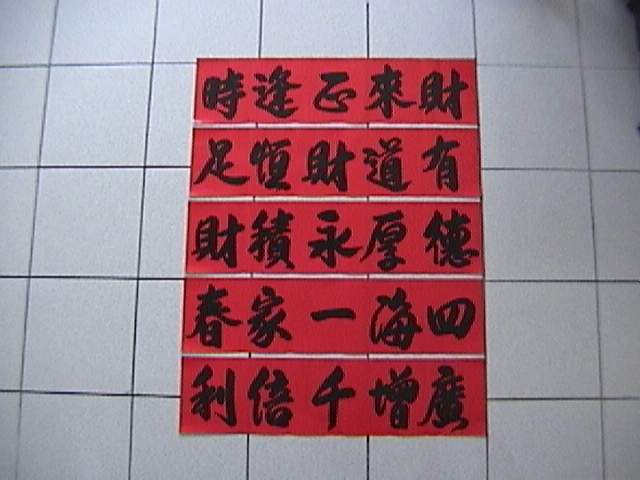 財來正逢時
有道財恒足
德厚永積財
四海一家春
廣增千倍利